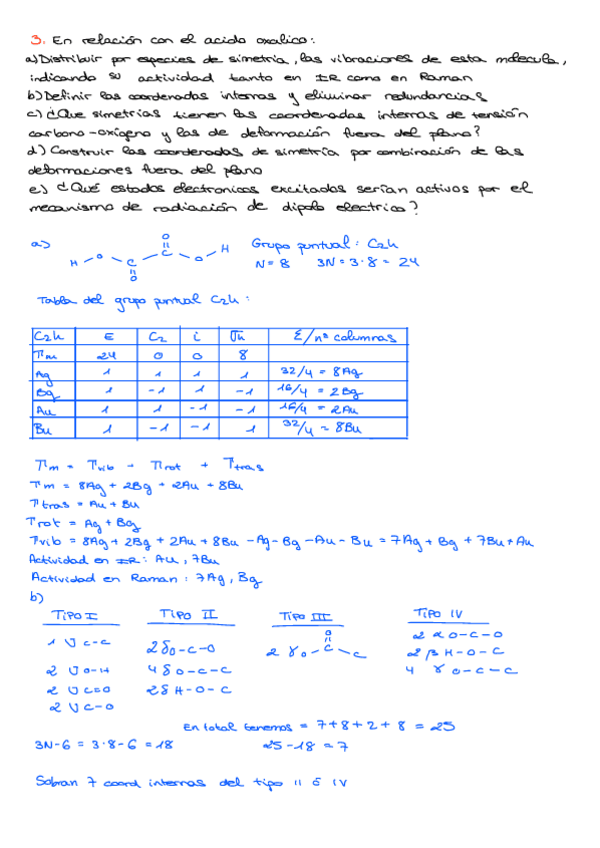 3. En relación con el acido oxalico:
a) Distribuir por especies de simetria, las vibraciones de esta molecula,
indicando su actividad tanto en IR como en Raman
b) Definir las coordenadas internas y eliminar redundancias
c) ¿Que simetrias tienen las coordenadas internas de tensión
carbono-oxígeno y las de deformación fuera del plano?
d) Construir las coordenadas de simetría por combinación de las
deformaciones fuera del plano
e) ¿Qué estados electronicos excitados serían activos por el
mecanismo de radiación de dipolo electrico?
a) H - O - C - C - O - H
O
O
Grupo puntual: C2h
N = 8 3N = 3·8 = 24
Tabla del grupo puntual C2h:
C2h E C2 i σh Σ/nº columnas
Γm 24 0 0 8
Ag 1 1 1 1 32/4 = 8Ag
Bg 1 -1 1 -1 16/4 = 2Bg
Au 1 1 -1 -1 16/4 = 2Au
Bu 1 -1 -1 1 32/4 = 8Bu
Γm = Γvib + Γrot + Γtras
Γm = 8Ag + 2Bg + 2Au + 8Bu
Γtras = Au + Bu
Γrot = Ag + Bg
Γvib = 8Ag + 2Bg + 2Au + 8Bu - Ag - Bg - Au - Bu = 7Ag + Bg + 7Bu + Au
Actividad en IR: Au, 7Bu
Actividad en Raman: 7Ag, Bg
b)
TIPO I TIPO II TIPO III TIPO IV
1 υ C-C 2 δ O-C-O 2 γ O-C-C O 2 α O-C-O
2 υ O-H 4 δ O-C-C 2 β H-O-C
2 υ C=O 2 δ H-O-C 4 γ O-C-C
2 υ C-O
En total tenemos = 7+8+2+8 = 25
3N-6 = 3·8-6 = 18 25-18 = 7
Sobran 7 coord internas del tipo II ó IV